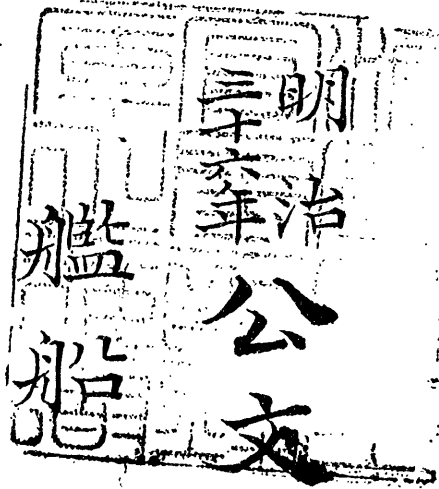 明治
三十六年
公文
艦船